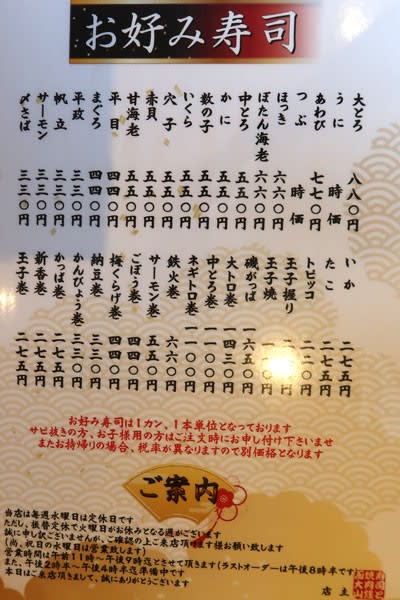 お好み寿司
大とろ 八八〇円
うに 時価
あわび 七七〇円
つぶ 時価
ほっき 六六〇円
ぼたん海老 六六〇円
中とろ 五五〇円
かに 五五〇円
数の子 五五〇円
いくら 五五〇円
穴子 五五〇円
赤貝 五五〇円
甘海老 五五〇円
平目 四四〇円
まぐろ 四四〇円
平政 三三〇円
帆立 三三〇円
サーモン 三三〇円
〆さば 三三〇円
いか 二七五円
たこ 二七五円
トビッコ
玉子握り
玉子焼
磯がっぱ
大トロ巻 一四三〇円
中とろ巻 一一〇〇円
ネギトロ巻 一一〇〇円
鉄火巻 六六〇円
サーモン巻 五五〇円
ごぼう巻 四四〇円
梅くらげ巻 四四〇円
納豆巻 三三〇円
かんぴょう巻 三三〇円
かっぱ巻 二七五円
新香巻 二七五円
玉子巻 二七五円
お好み寿司は1カン、1本単位となっております
サビ抜きの方、お子様用の方はご注文時にお申し付け下さいませ
またお持帰りの場合、税率が異なりますので別価格となります
ご案内
当店は毎週水曜日は定休日です
ただし、振替定休で火曜日がお休みとなる週がございます
誠に申し訳ございませんが、ご確認の上ご来店頂けます様お願い致します
(尚、祝日の水曜日は営業致します)
営業時間は午前11時〜午後9時迄とさせて頂きます(ラストオーダーは午後8時半です)
また、午後2時半〜午後4時半迄準備中です
本日はご来店まして、誠にありがとうございます
店 主